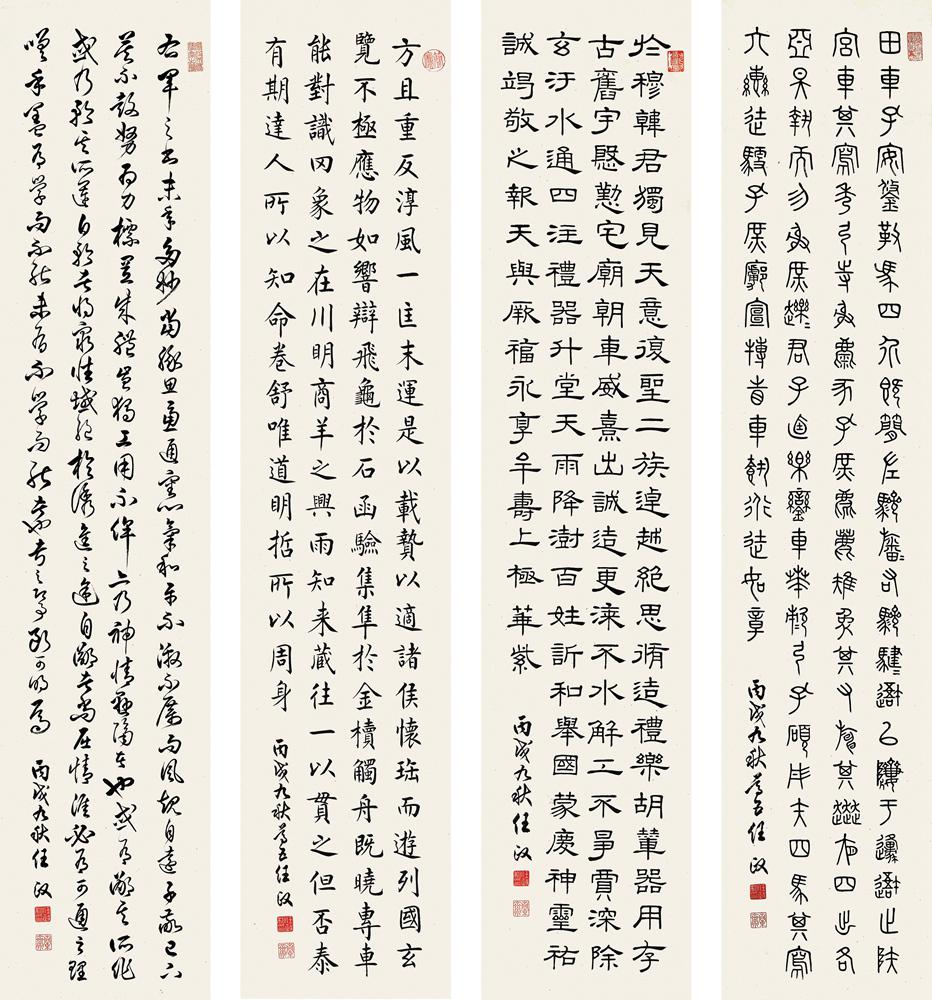 田車孔安鋚勒馬四介既簡左驂旛右驂騝邋以隮于邍邋止陝
宮車其寫秀弓寺射麋豕孔庶麀鹿雉兔其又其夜四出各
亞昊執而勿射庶君子逌樂鑾車華弓孔碩彤矢四馬其寫
六轡徒馭孔庶廓宣搏眚車衍徒如章
丙戌九秋任政
於穆韓君獨見天意復聖二族逴越絕思脩造禮樂胡輦器用存
古舊宇慇懃宅廟朝車威熹出誠造更漆不水解工不爭賈深除
玄汙水通四注禮器升堂天雨降澍百姓訢和舉國蒙慶神靈祐
誠竭敬之報天與厥福永享牟壽上極華紫
丙戌九秋任政
方且重反淳風一匡末運是以載贄以適諸侯懷珤而遊列國玄
覽不極應物如響辯飛龜於石函驗集隼於金櫝觸舟既曉專車
能對識罔象之在川明商羊之興雨知来藏往一以貫之但否泰
有期達人所以知命卷舒唯道明哲所以周身
丙戌九秋任政
右軍之書末年多妙當緣思慮通審志氣和平不激不厲而風規自遠子敬已下
莫不鼓努為力標置成體豈獨工用不侔亦乃神情懸隔者也或有鄙其所作
或乃矜其所運自矜者將窮性域絕於誘進之途自鄙者尚屈情涯必有可通之理
嗟乎蓋有學而不能未有不學而能者也考之即事斷可明焉
丙戌九秋任政